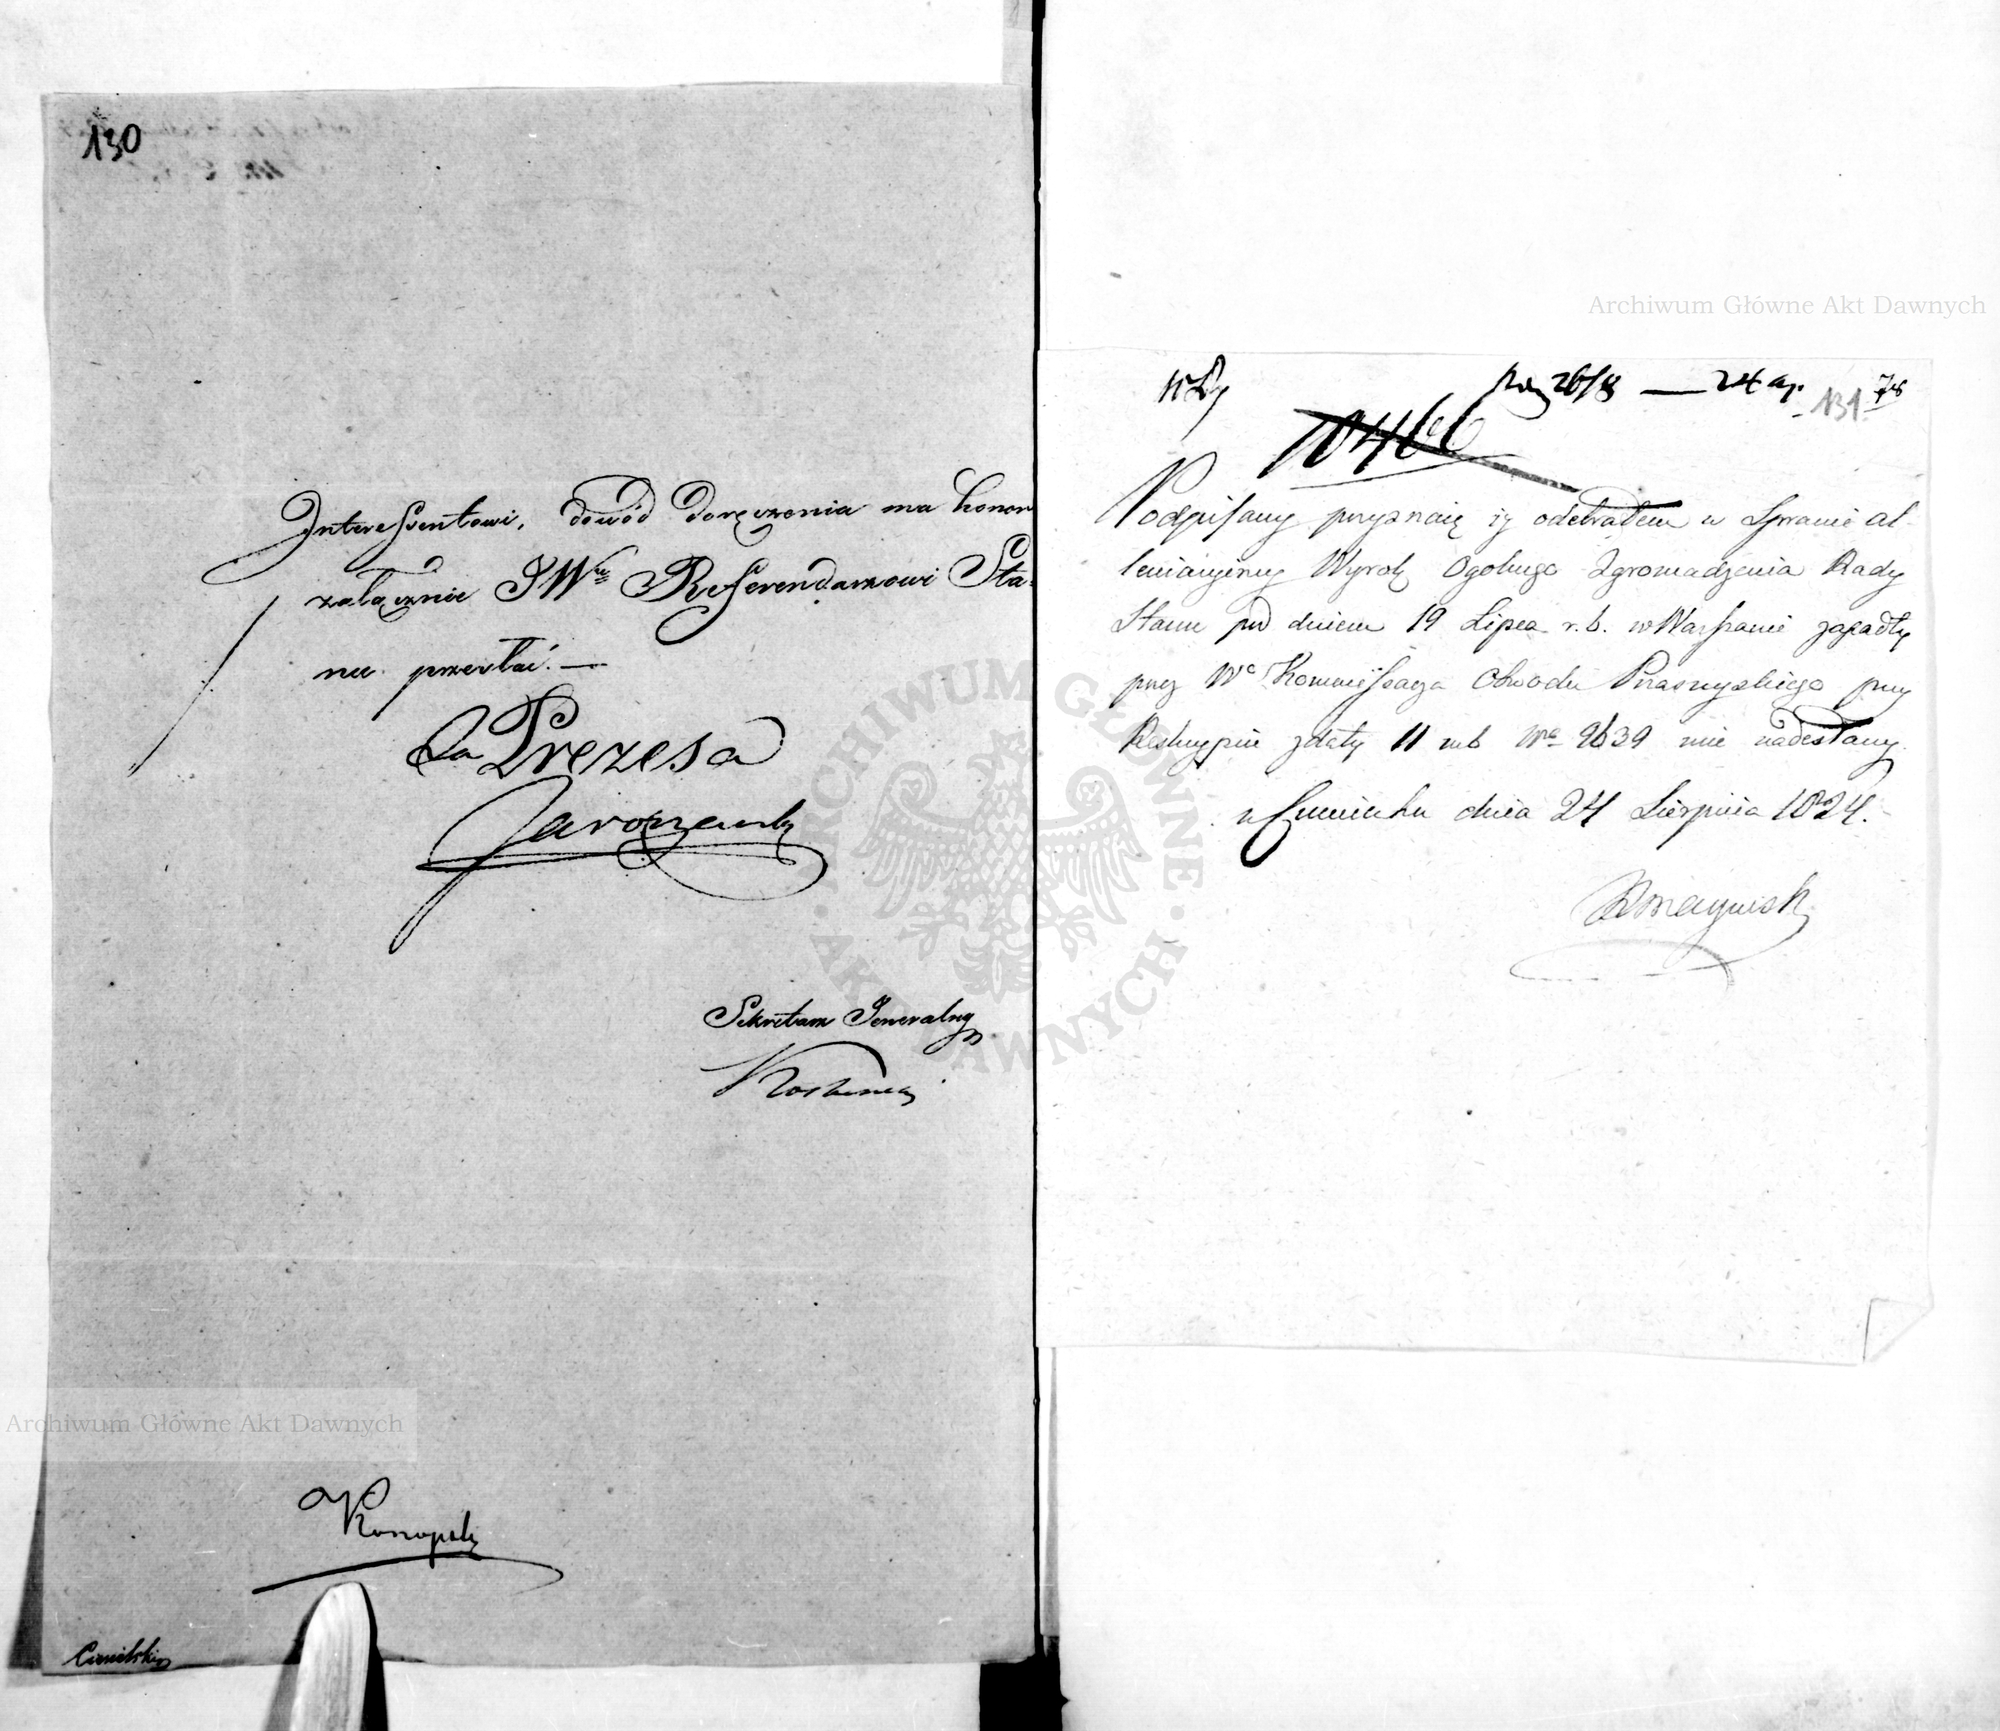 130
Interessentowi, dowód doręczenia ma honor
załącznie JW Referendarzowi Sta-
nu przesłać. —
Za Prezesa
Sekretarz Jeneralny
Konopk
Archiwum Główne Akt Dawnych
ARCHIWUM GŁÓWNE AKT DAWNYCH
Archiwum Główne Akt Dawnych
26/8 — 24 131
10466
Podpisany przyznaię iż odebrałem w Sprawie
Wyrok Ogólnego Zgromadzenia Rady
Stanu pod dniem 19 Lipca r. b. w Warszawie zapadły
przez W Kommissarza Obwodu Prasnyskiego przy
Reskrypcie z daty 11 mb Nro 9639 mnie nadesłany
dnia 24 Sierpnia 1824.